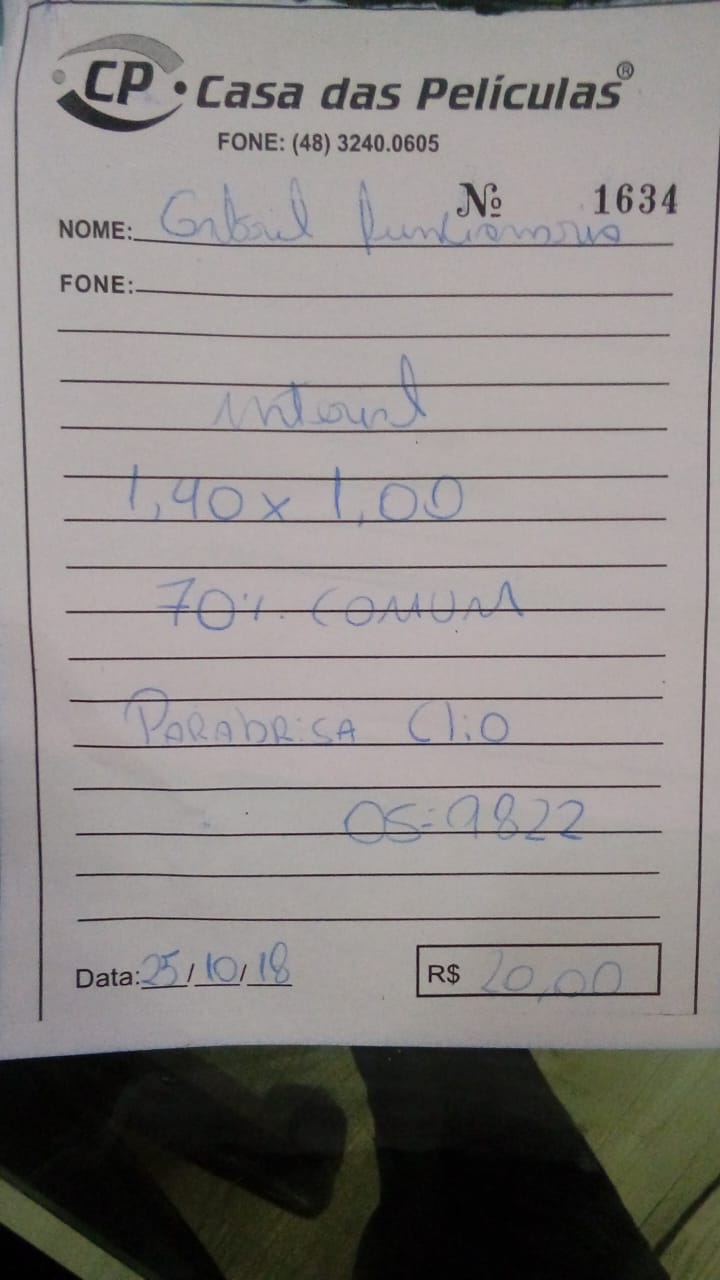 CP Casa das Películas®
FONE: (48) 3240.0605
Nº 1634
NOME: Gabriel funcionario
FONE:
1,40 x 1,00
70%. COMUM
PARABRISA Clio
OS=9822
Data: 25/10/18 R$ 20,00